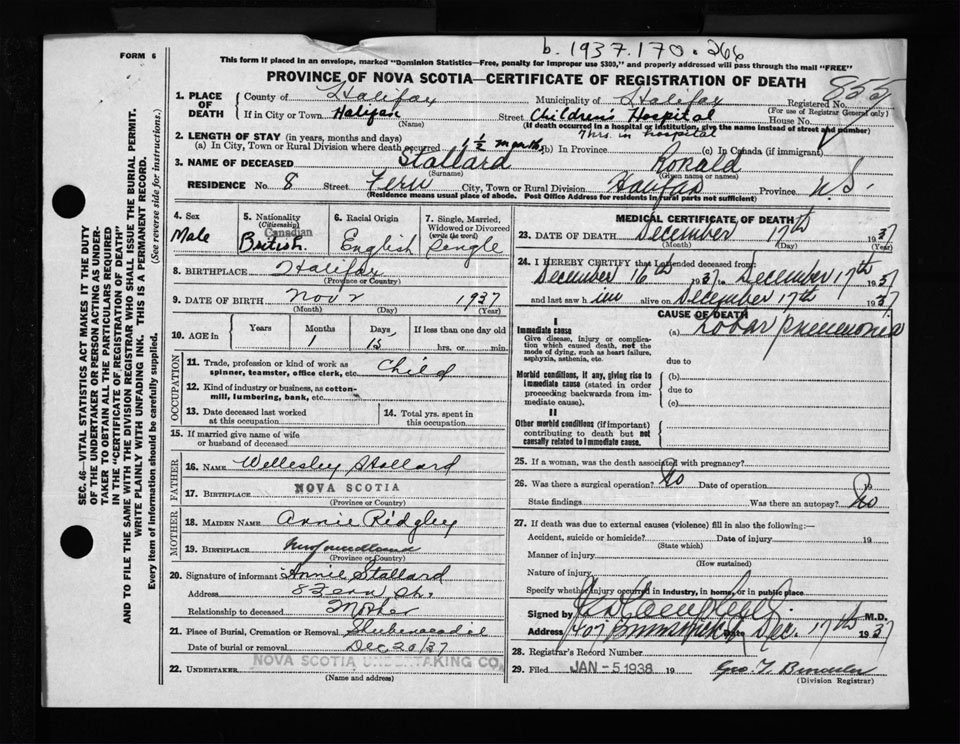 b. 1937.170.266
FORM 6
This form if placed in an envelope, marked "Dominion Statistics—Free, penalty for improper use $300," and properly addressed will pass through the mail "FREE"
PROVINCE OF NOVA SCOTIA—CERTIFICATE OF REGISTRATION OF DEATH
855
1. PLACE OF DEATH
County of Halifax Municipality of Halifax Registered No.
(For use of Registrar General only)
If in City or Town Halifax Street Children's Hospital House No.
(Name) (If death occurred in a hospital or institution, give the name instead of street and number)
2. LENGTH OF STAY (in years, months and days) 7 hrs. in hospital
(a) In City, Town or Rural Division where death occurred 1 1/2 months (b) In Province (c) In Canada (if immigrant)
3. NAME OF DECEASED Stallard Ronald
(Surname) (Given name or names)
RESIDENCE No. 8 Street Fern City, Town or Rural Division Halifax Province N.S.
(Residence means usual place of abode. Post Office Address for residents in rural parts not sufficient)
4. Sex Male
5. Nationality (Citizenship) Canadian British
6. Racial Origin English
7. Single, Married, Widowed or Divorced (write the word) Single
8. BIRTHPLACE Halifax
(Province or Country)
9. DATE OF BIRTH Nov 2 1937
(Month) (Day) (Year)
10. AGE in Years Months Days If less than one day old
1 15 hrs. or min.
OCCUPATION
11. Trade, profession or kind of work as spinner, teamster, office clerk, etc. Child
12. Kind of industry or business, as cotton-mill, lumbering, bank, etc.
13. Date deceased last worked at this occupation
14. Total yrs. spent in this occupation
15. If married give name of wife or husband of deceased
FATHER
16. NAME Wellesley Stallard
17. BIRTHPLACE NOVA SCOTIA
(Province or Country)
MOTHER
18. MAIDEN NAME Annie Ridgley
19. BIRTHPLACE Newfoundland
(Province or Country)
20. Signature of informant Annie Stallard
Address 8 Fern St.
Relationship to deceased Mother
21. Place of Burial, Cremation or Removal Shubenacadie
Date of burial or removal Dec 20/37
22. UNDERTAKER NOVA SCOTIA UNDERTAKING CO.
(Name and address)
MEDICAL CERTIFICATE OF DEATH
23. DATE OF DEATH December 17th 1937
(Month) (Day) (Year)
24. I HEREBY CERTIFY that I attended deceased from
December 16th 1937 to December 17th 1937
and last saw him alive on December 17th 1937
CAUSE OF DEATH
I
Immediate cause (a) Lobar pneumonia
Give disease, injury or complication which caused death, not the mode of dying, such as heart failure, asphyxia, asthenia, etc.
due to
Morbid conditions, if any, giving rise to immediate cause (stated in order proceeding backwards from immediate cause).
(b)
due to
(c)
II
Other morbid conditions (if important) contributing to death but not causally related to immediate cause.
25. If a woman, was the death associated with pregnancy?
26. Was there a surgical operation? No Date of operation 19
State findings Was there an autopsy? No
27. If death was due to external causes (violence) fill in also the following:—
Accident, suicide or homicide? Date of injury 19
(State which)
Manner of injury
(How sustained)
Nature of injury
Specify whether injury occurred in industry, in home, or in public place
Signed by M.D.
Address 407 Brunswick St Date Dec. 17th 1937
28. Registrar's Record Number
29. Filed JAN - 5 1938 19
(Division Registrar)
SEC. 46—VITAL STATISTICS ACT MAKES IT THE DUTY
OF THE UNDERTAKER OR PERSON ACTING AS UNDERTAKER TO OBTAIN ALL THE PARTICULARS REQUIRED
IN THE "CERTIFICATE OF REGISTRATION OF DEATH"
AND TO FILE THE SAME WITH THE DIVISION REGISTRAR WHO SHALL ISSUE THE BURIAL PERMIT.
WRITE PLAINLY WITH UNFADING INK. THIS IS A PERMANENT RECORD.
Every item of information should be carefully supplied. (See reverse side for instructions.)